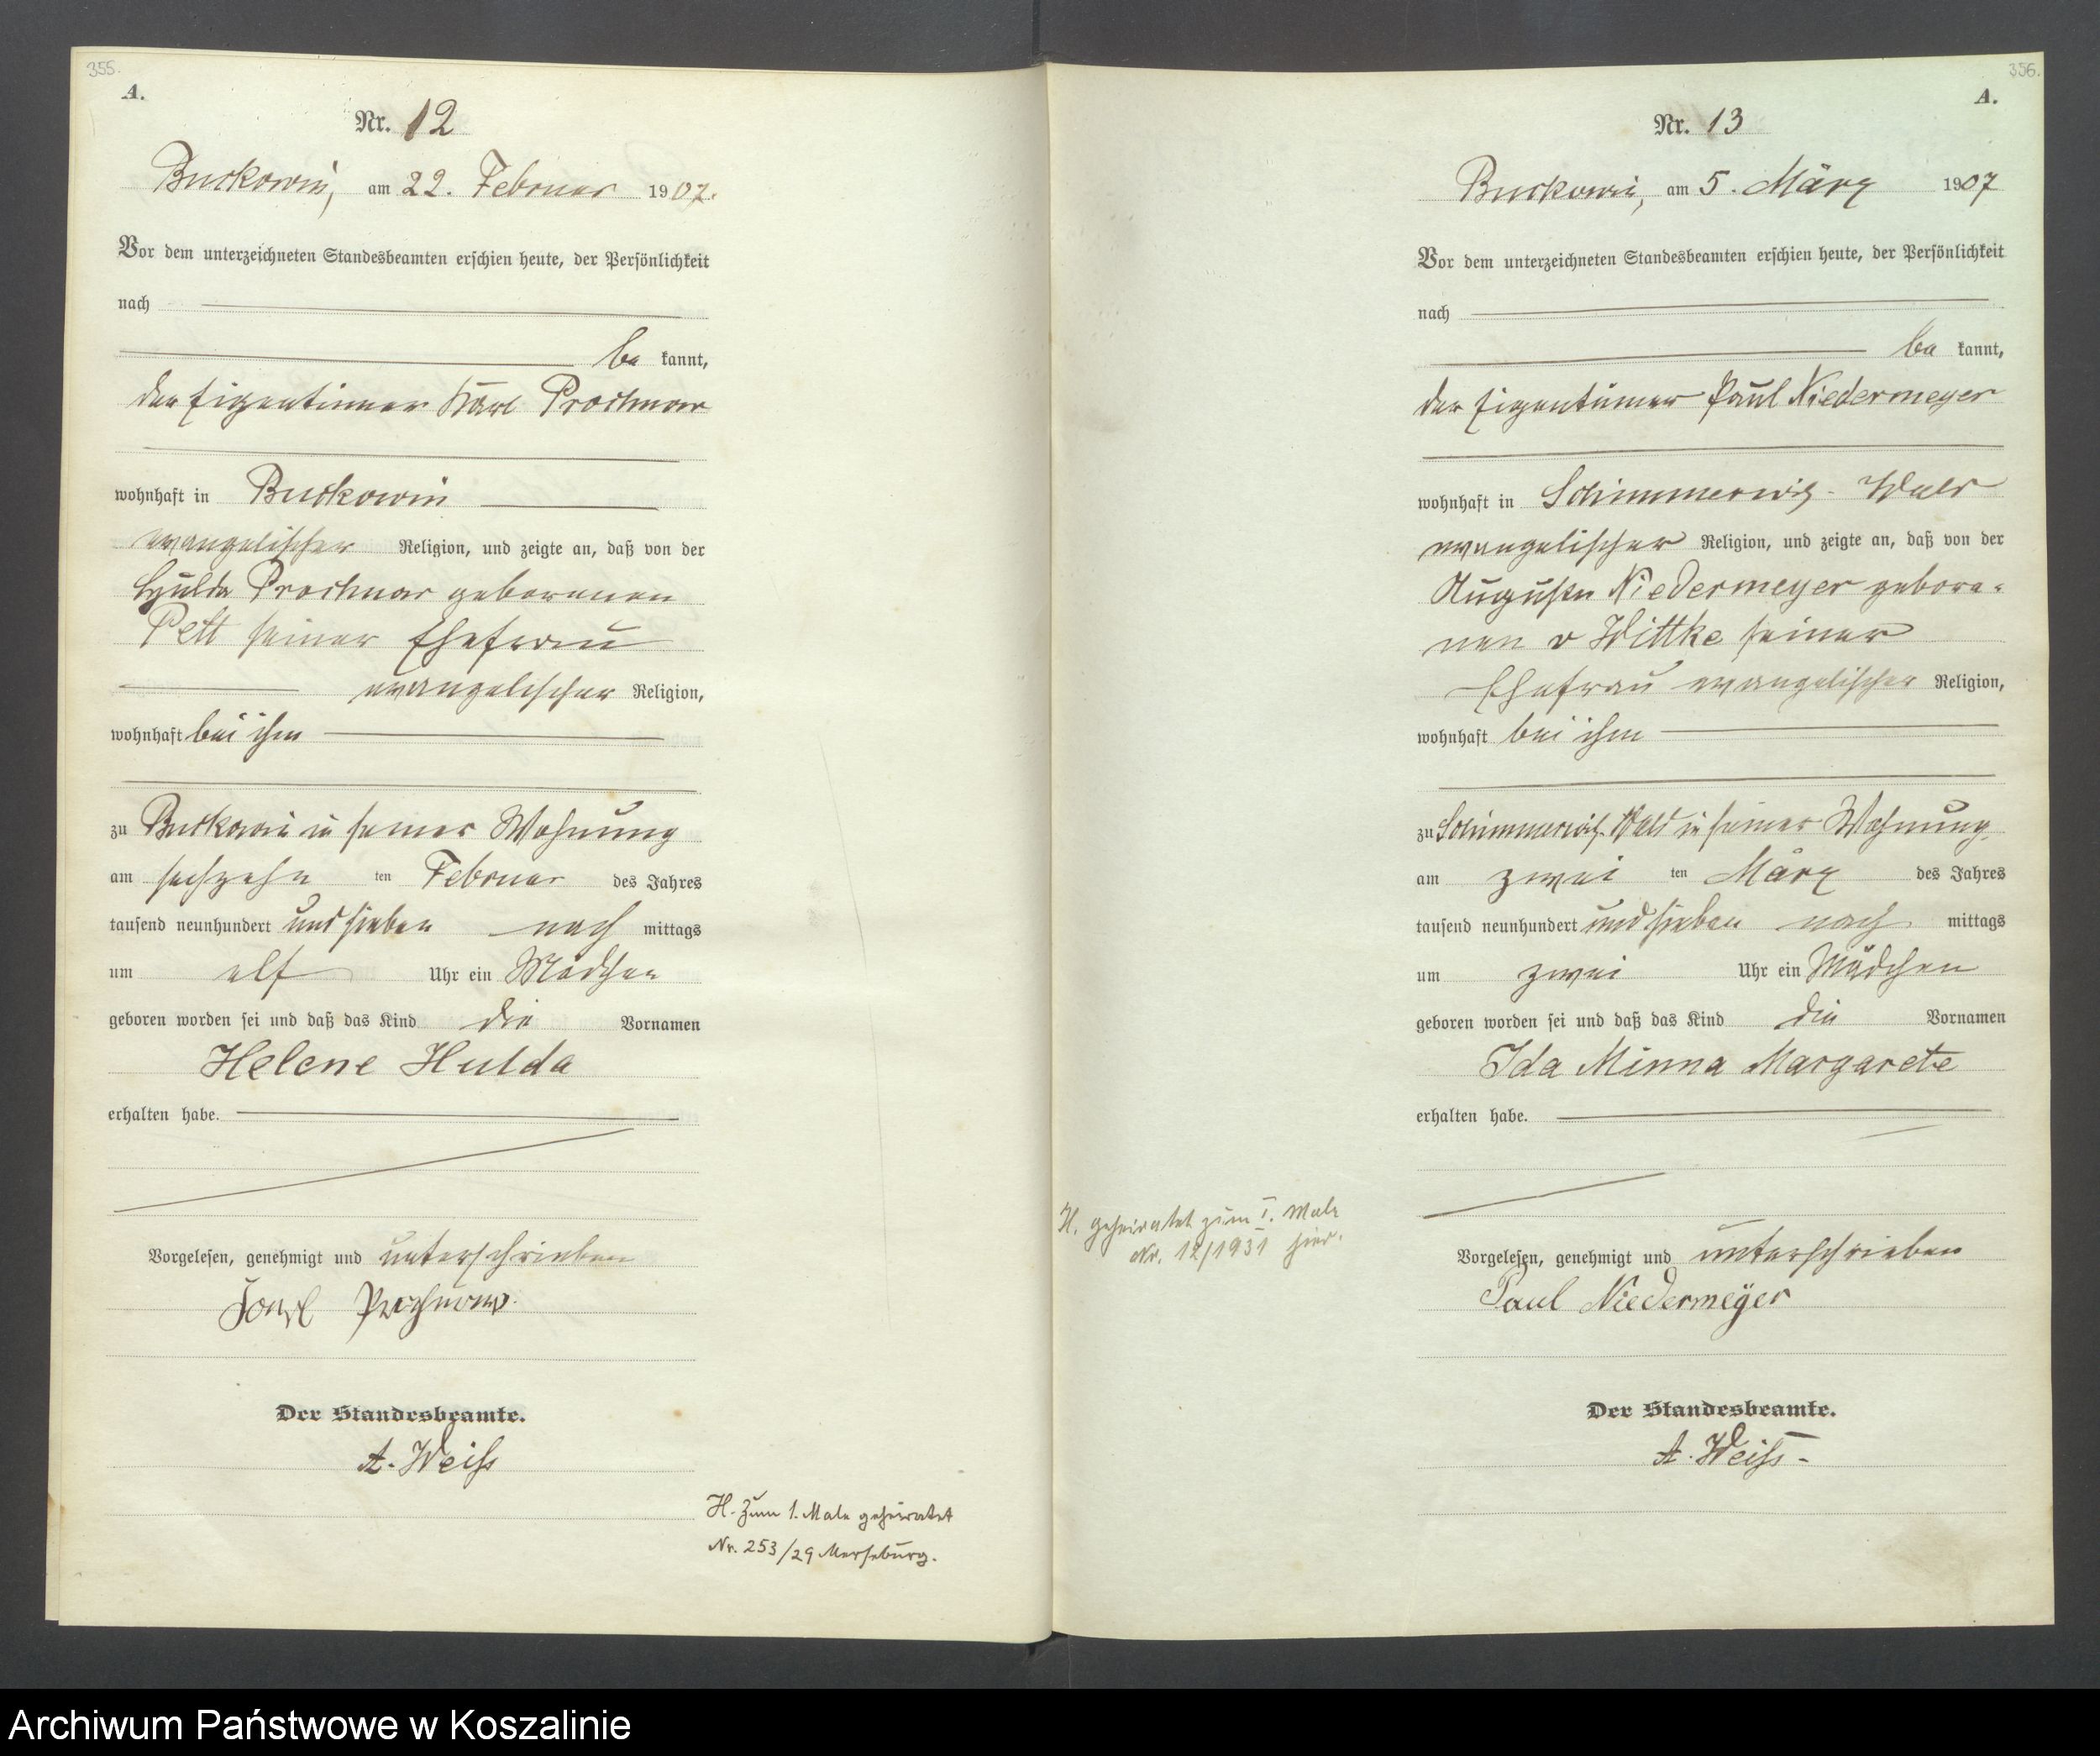 355.
A.
Nr. 12
Buckowin, am 22. Februar 1907.
Vor dem unterzeichneten Standesbeamten erschien heute, der Persönlichkeit
nach
be kannt,
der Eigentümer Karl Prochnow
wohnhaft in Buckowin
evangelischer Religion, und zeigte an, daß von der
Hulda Prochnow geborenen
Pett seiner Ehefrau
evangelischer Religion,
wohnhaft bei ihm
zu Buckowin in seiner Wohnung
am sechzehn ten Februar des Jahres
tausend neunhundert und sieben nach mittags
um elf Uhr ein Mädchen
geboren worden sei und daß das Kind die Vornamen
Helene Hulda
erhalten habe.
Vorgelesen, genehmigt und unterschrieben
Karl Prochnow.
Der Standesbeamte.
A. Weiß
H. Zum 1. Male geheiratet
Nr. 253/29 Merseburg.
356.
A.
Nr. 13
Buckowin, am 5. März 1907
Vor dem unterzeichneten Standesbeamten erschien heute, der Persönlichkeit
nach
be kannt,
der Eigentümer Paul Niedermeyer
wohnhaft in Schimmerwitz-Wald
evangelischer Religion, und zeigte an, daß von der
Auguste Niedermeyer gebore-
nen v Wittke seiner
Ehefrau evangelischer Religion,
wohnhaft bei ihm
zu Schimmerwitz-Wald in seiner Wohnung
am zwei ten März des Jahres
tausend neunhundert und sieben nach mittags
um zwei Uhr ein Mädchen
geboren worden sei und daß das Kind die Vornamen
Ida Minna Margarete
erhalten habe.
H. geheiratet zum I. Male
Nr. 12/1931 hier.
Vorgelesen, genehmigt und unterschrieben
Paul Niedermeÿer
Der Standesbeamte.
A. Weiß-
Archiwum Państwowe w Koszalinie